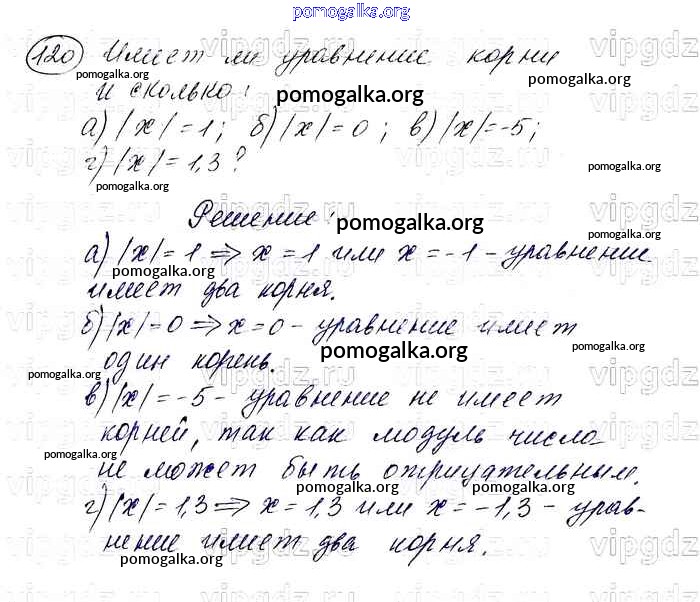 pomogalka.org
120 Имеет ли уравнение корни
pomogalka.org
и сколько:
pomogalka.org
а) |x|=1; б) |x|=0; в) |x|=-5;
г) |x|=1,3?
pomogalka.org
pomogalka.org
Решение:
pomogalka.org
а) |x|=1 ⇒ x=1 или x=-1 - уравнение
pomogalka.org
имеет два корня.
б) |x|=0 ⇒ x=0 - уравнение имеет
pomogalka.org
pomogalka.org
один корень.
pomogalka.org
в) |x|=-5 - уравнение не имеет
корней, так как модуль числа
pomogalka.org
не может быть отрицательным.
pomogalka.org
pomogalka.org
г) |x|=1,3 ⇒ x=1,3 или x=-1,3 - урав-
нение имеет два корня.
pomogalka.org